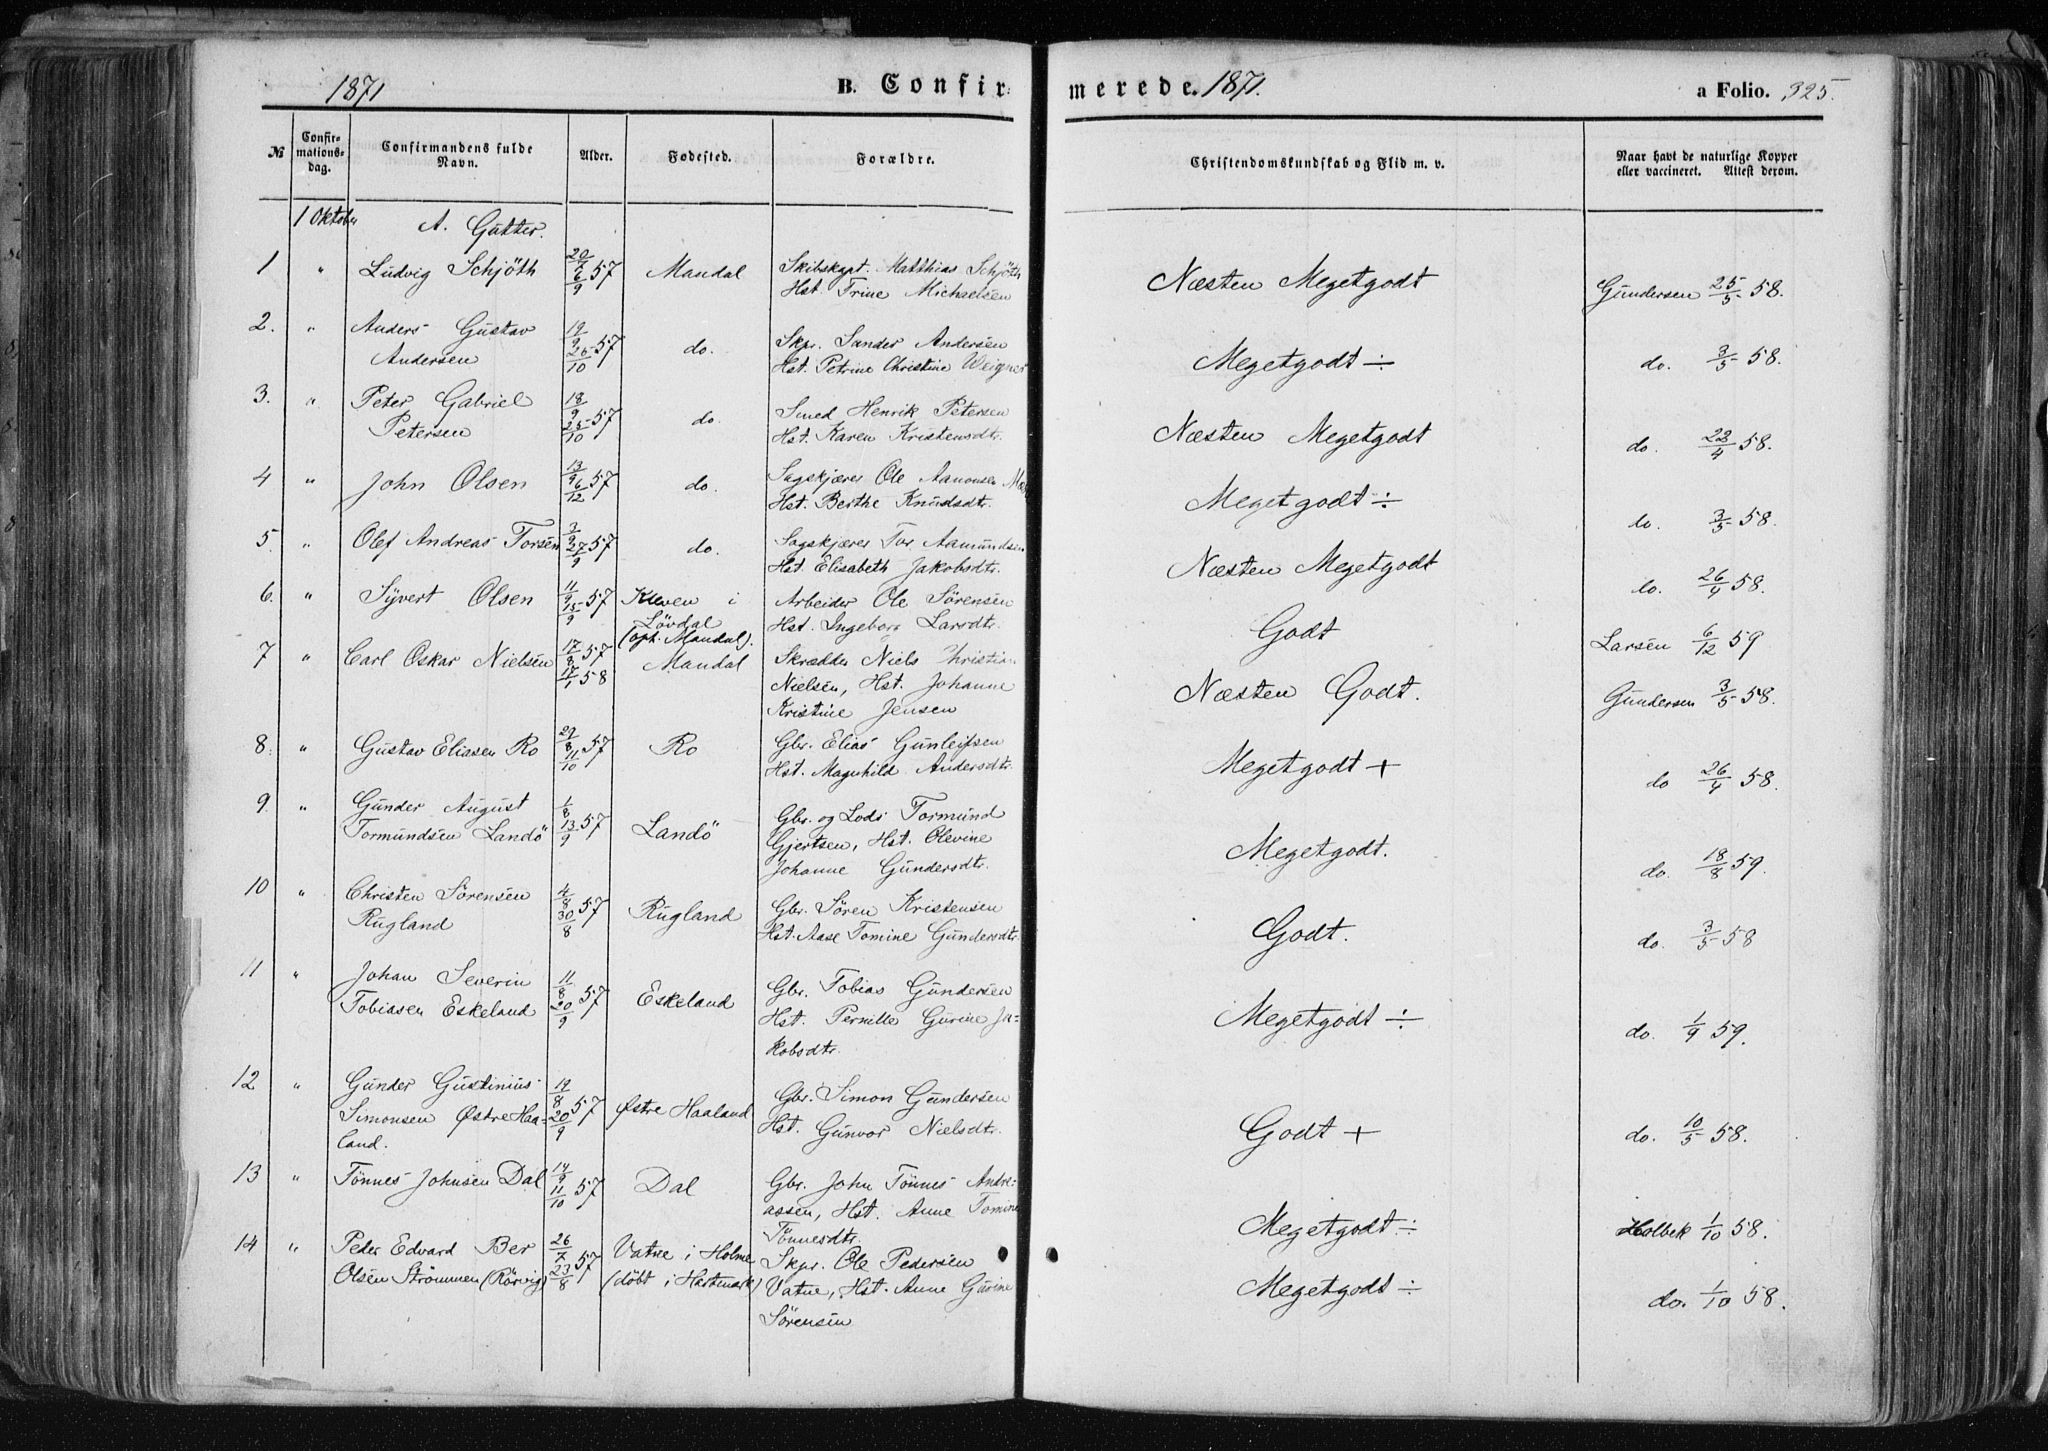 1871 B. Confirmerede. 1871. a Folio. 325.
№ Confirmationsdag. Confirmandens fulde Navn. Alder. Fødested. Forældre. Christendomskundskab og Flid m. v. Naar havt de naturlige Kopper eller vaccineret. Attest derom.
1 Oktober A. Gutter.
1 " Ludvig Schjöth 20/7 6/9 57 Mandal Skibskapt. Matthias Schjöth Næsten Megetgodt Gundersen 25/5 58.
Hst. Trine Michaelsen
2. " Anders Gustav Andersen 19/9 25/10 57 do. Skpr. Sander Andersen Megetgodt ÷ do. 3/5 58.
Hst. Petrine Christine Weigner
3. " Peter Gabriel Petersen 18/9 25/10 57 do. Smed Henrik Petersen Næsten Megetgodt do. 22/4 58.
Hst. Karen Kristensdtr.
4 " John Olsen 13/9 6/12 57 do. Sagskjærer Ole Aanonsen Megetgodt ÷ do. 3/5 58.
Hst. Berthe Knudsdtr.
5. " Olef Andreas Torsen 3/9 27/9 57 do. Sagskjærer Tor Aamundsen Næsten Megetgodt do. 26/4 58.
Hst Elisabeth Jakobsdtr.
6. " Syvert Olsen 11/9 15/9 57 Kleven i Arbeider Ole Sörensen Godt Larsen 6/12 59
Lövdal Hst. Ingeborg Larsdtr.
(oph. Mandal).
7 " Carl Oskar Nielsen 17/8 57 17/1 58 Mandal Skrædder Niels Christian Næsten Godt. Gundersen 3/5 58.
Nielsen, Hst. Johanne
Kristine Jensen
8. " Gustav Eliasen Ro 29/8 11/10 57 Ro Gbr. Elias Gunleifsen Megetgodt + do 26/4 58.
Hst. Magnhild Andersdtr.
9. " Gunder August 1/8 13/9 57 Landö Gbr. og Lods Tormund Megetgodt. do. 18/8 59.
Tormundsen Landö Gjertsen, Hst. Olevine
Johanne Gundersdtr.
10 " Christen Sörensen 4/8 30/8 57 Rugland Gbr. Sören Kristensen Godt. do. 3/5 58
Rugland Hst. Aase Tomine Gundersdtr.
11 " Johan Severin 11/8 20/9 57 Eskeland Gbr. Tobias Gundersen Megetgodt ÷ do. 1/9 59.
Tobiasen Eskeland Hst. Pernille Gurine Ja-
kobsdtr.
12 " Gunder Gustinius 19/8 20/9 57 Østre Haaland Gbr. Simon Gundersen Godt + do. 10/5 58.
Simonsen Østre Haa- Hst. Gunvor Nielsdtr.
land.
13 " Tönnes Johnsen Dal 14/9 11/10 57 Dal Gbr. John Tönnes Andre- Megetgodt ÷ Holbek 1/10 58.
assen, Hst. Anne Tomine
Tönnesdtr.
14 " Peder Edvard Ber 26/7 23/8 57 Vatne i Holme Skpr. Ole Pedersen Megetgodt ÷ do. 1/10 58.
Olsen Strömmen (Rörvig) (döbt i Hartmark) Vatne, Hst. Anne Gurine
Sörensen